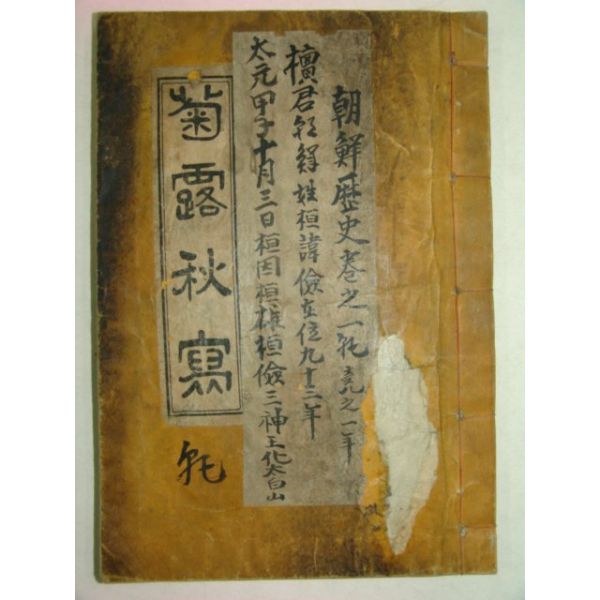 朝鮮歷史卷之一乾
檀君朝鮮姓桓諱儉在位九十三年
太元甲子十月三日桓因桓雄桓儉三神王化太白山
菊露秋寫
乾